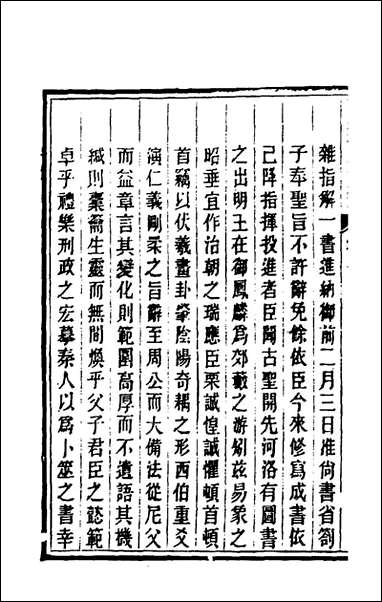 雜指解一書進納御前二月三日准尚書省劄
子奉聖旨不許辭免餘依臣今來修寫成書依
已降指揮投進者臣聞古聖開先河洛有圖書
之出明王在御鳳麟為郊藪之游矧茲易象之
昭垂宜作治朝之瑞應臣栗誠惶誠懼頓首頓
首竊以伏羲畫卦肇陰陽奇耦之形西伯重爻
演仁義剛柔之旨辭至周公而大備法從尼父
而益章言其變化則範圍高厚而不遺語其機
緘則橐籥生靈而無間煥乎父子君臣之懿範
卓乎禮樂刑政之宏摹秦人以爲卜筮之書幸